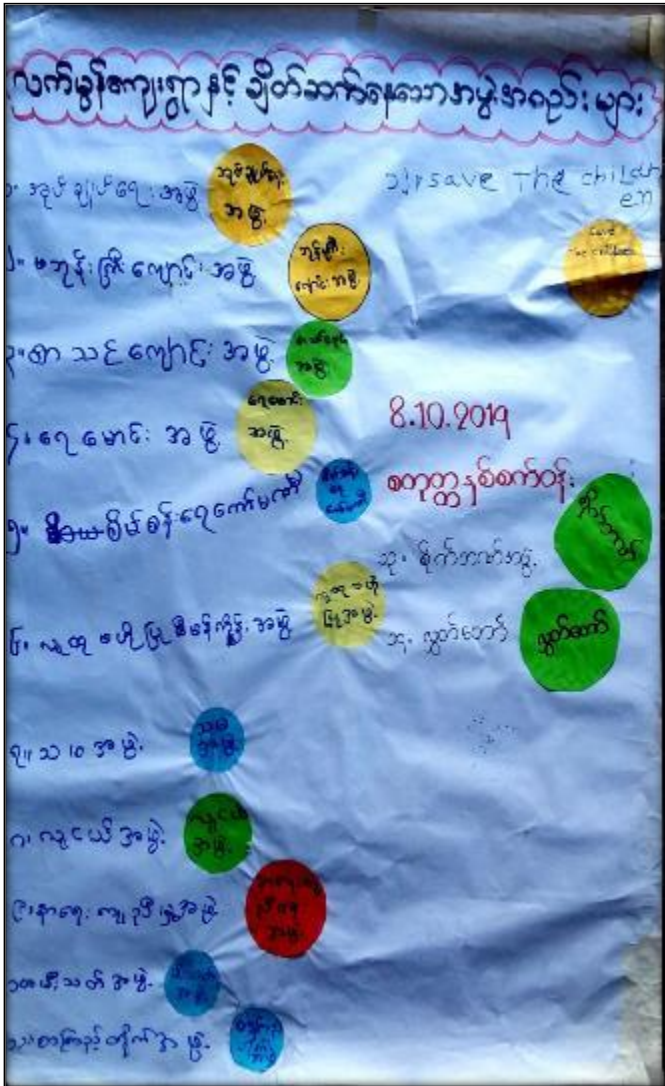 လက်မွန်ကျေးရွာနှင့် ချိတ်ဆက်နေသောအဖွဲ့အစည်းများ
၁။ အုပ်ချုပ်ရေးအဖွဲ့
အုပ်ချုပ်ရေး
အဖွဲ့
၂။ ဖဘုန်းကြီးကျောင်းအဖွဲ့
ဘုန်းကြီး
ကျောင်းအဖွဲ့
၃။ စာသင်ကျောင်းအဖွဲ့
အဖွဲ့
၄။ ရေမောင်းအဖွဲ့
ရေမောင်း
အဖွဲ့
၅။ စိမ်စမ်းရေကော်မတီ
၆။ လူထုဗဟိုပြုစီမံကိန်းအဖွဲ့
လူထုဗဟို
ပြုအဖွဲ့
၇။ သ၊ မ အဖွဲ့
သမ
အဖွဲ့
၈။ လူငယ်အဖွဲ့
လူငယ်
အဖွဲ့
၉။ နာရေးကူညီမှုအဖွဲ့
အဖွဲ့
၁၀။ မီးသတ်အဖွဲ့
အဖွဲ့
၁၁။ စာကြည့်တိုက်အဖွဲ့
၁၂။ save The childr
en
Save
The children
8.10.2019
စတုတ္ထနှစ်စက်ဝန်း
၁၃။ စိုက်ဘဏ်အဖွဲ့
၁၄။ လွှတ်တော်
လွှတ်တော်